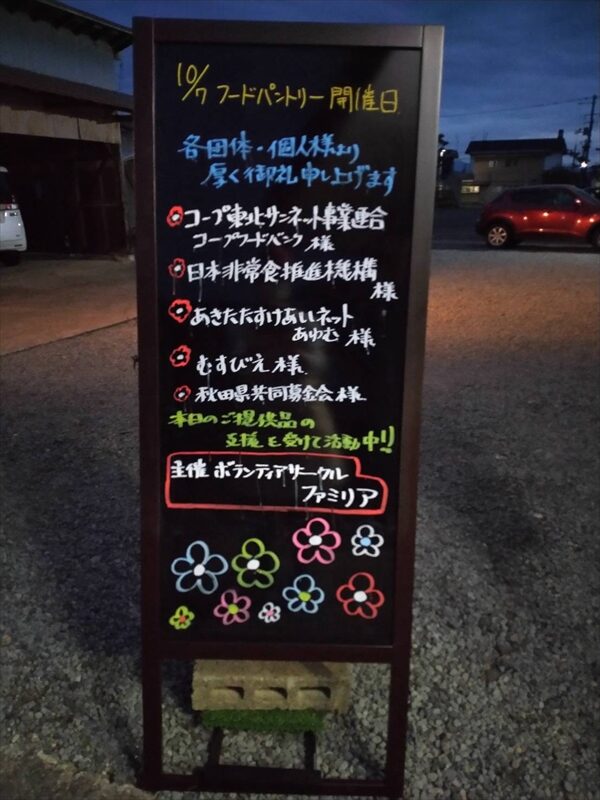 10/7 フードパントリー開催日
各団体・個人様より
厚く御礼申し上げます
コープ東北サンネット事業連合
コープフードバンク 様
日本非常食推進機構
様
あきたたすけあいネット
あゆむ 様
むすびえ 様
秋田県共同募金会 様
本日のご提供品の
支援を受けて活動中!!
主催 ボランティアサークル
ファミリア